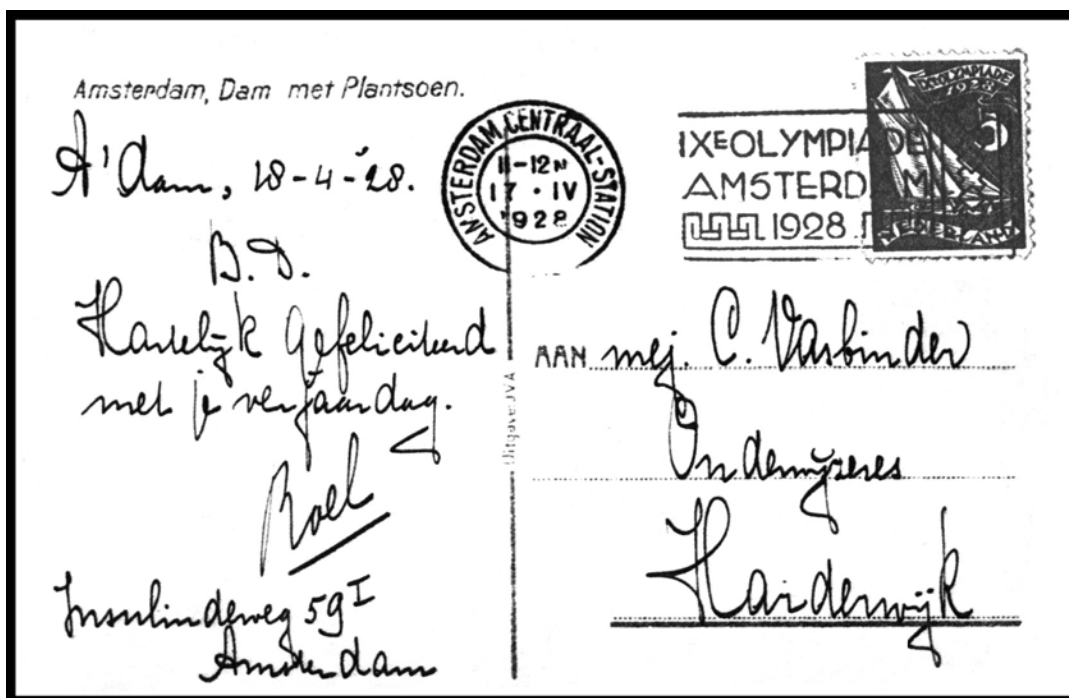 Amsterdam, Dam met Plantsoen.
A'Dam, 18-4-'28.
B.D.
Hartelijk gefeliciteerd
met je verjaardag.
Roel
Insulindeweg 59 I
Amsterdam
Uitgave JVA
AMSTERDAM CENTRAAL-STATION
11-12 N
17 · IV
1928
IXE OLYMPIADE
AMSTERDAM
1928
IXE OLYMPIADE
1928
5
NEDERLAND
AAN mej. C. Vasbinder
Onderwijzeres
Harderwijk